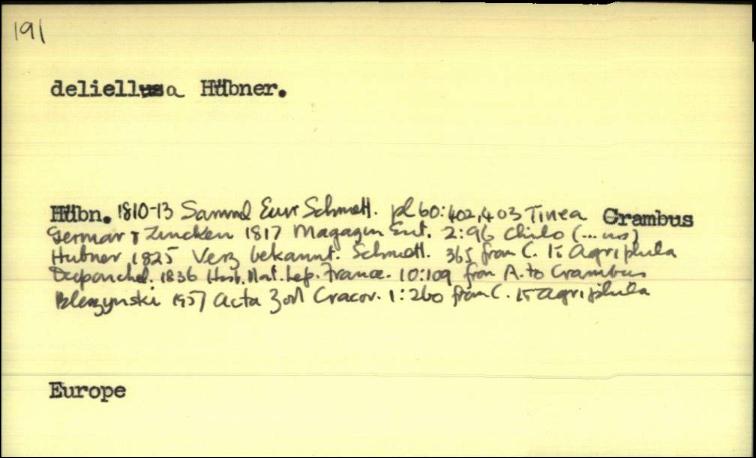 191
deliellusa Hübner.
Hübn. 1810-13 Samml Eur Schmett. pl 60:402,403 Tinea Crambus
Germar & Zincken 1817 Magazin Ent. 2:96 Chilo (...us)
Hubner 1825 Verz bekannt. Schmett. 365 from C. to Agriphila
Duponchel. 1836 Hist. Nat. Lep. France. 10:109 from A. to Crambus
Bleszynski 1957 Acta Zool Cracov. 1:260 from C. to Agriphila
Europe